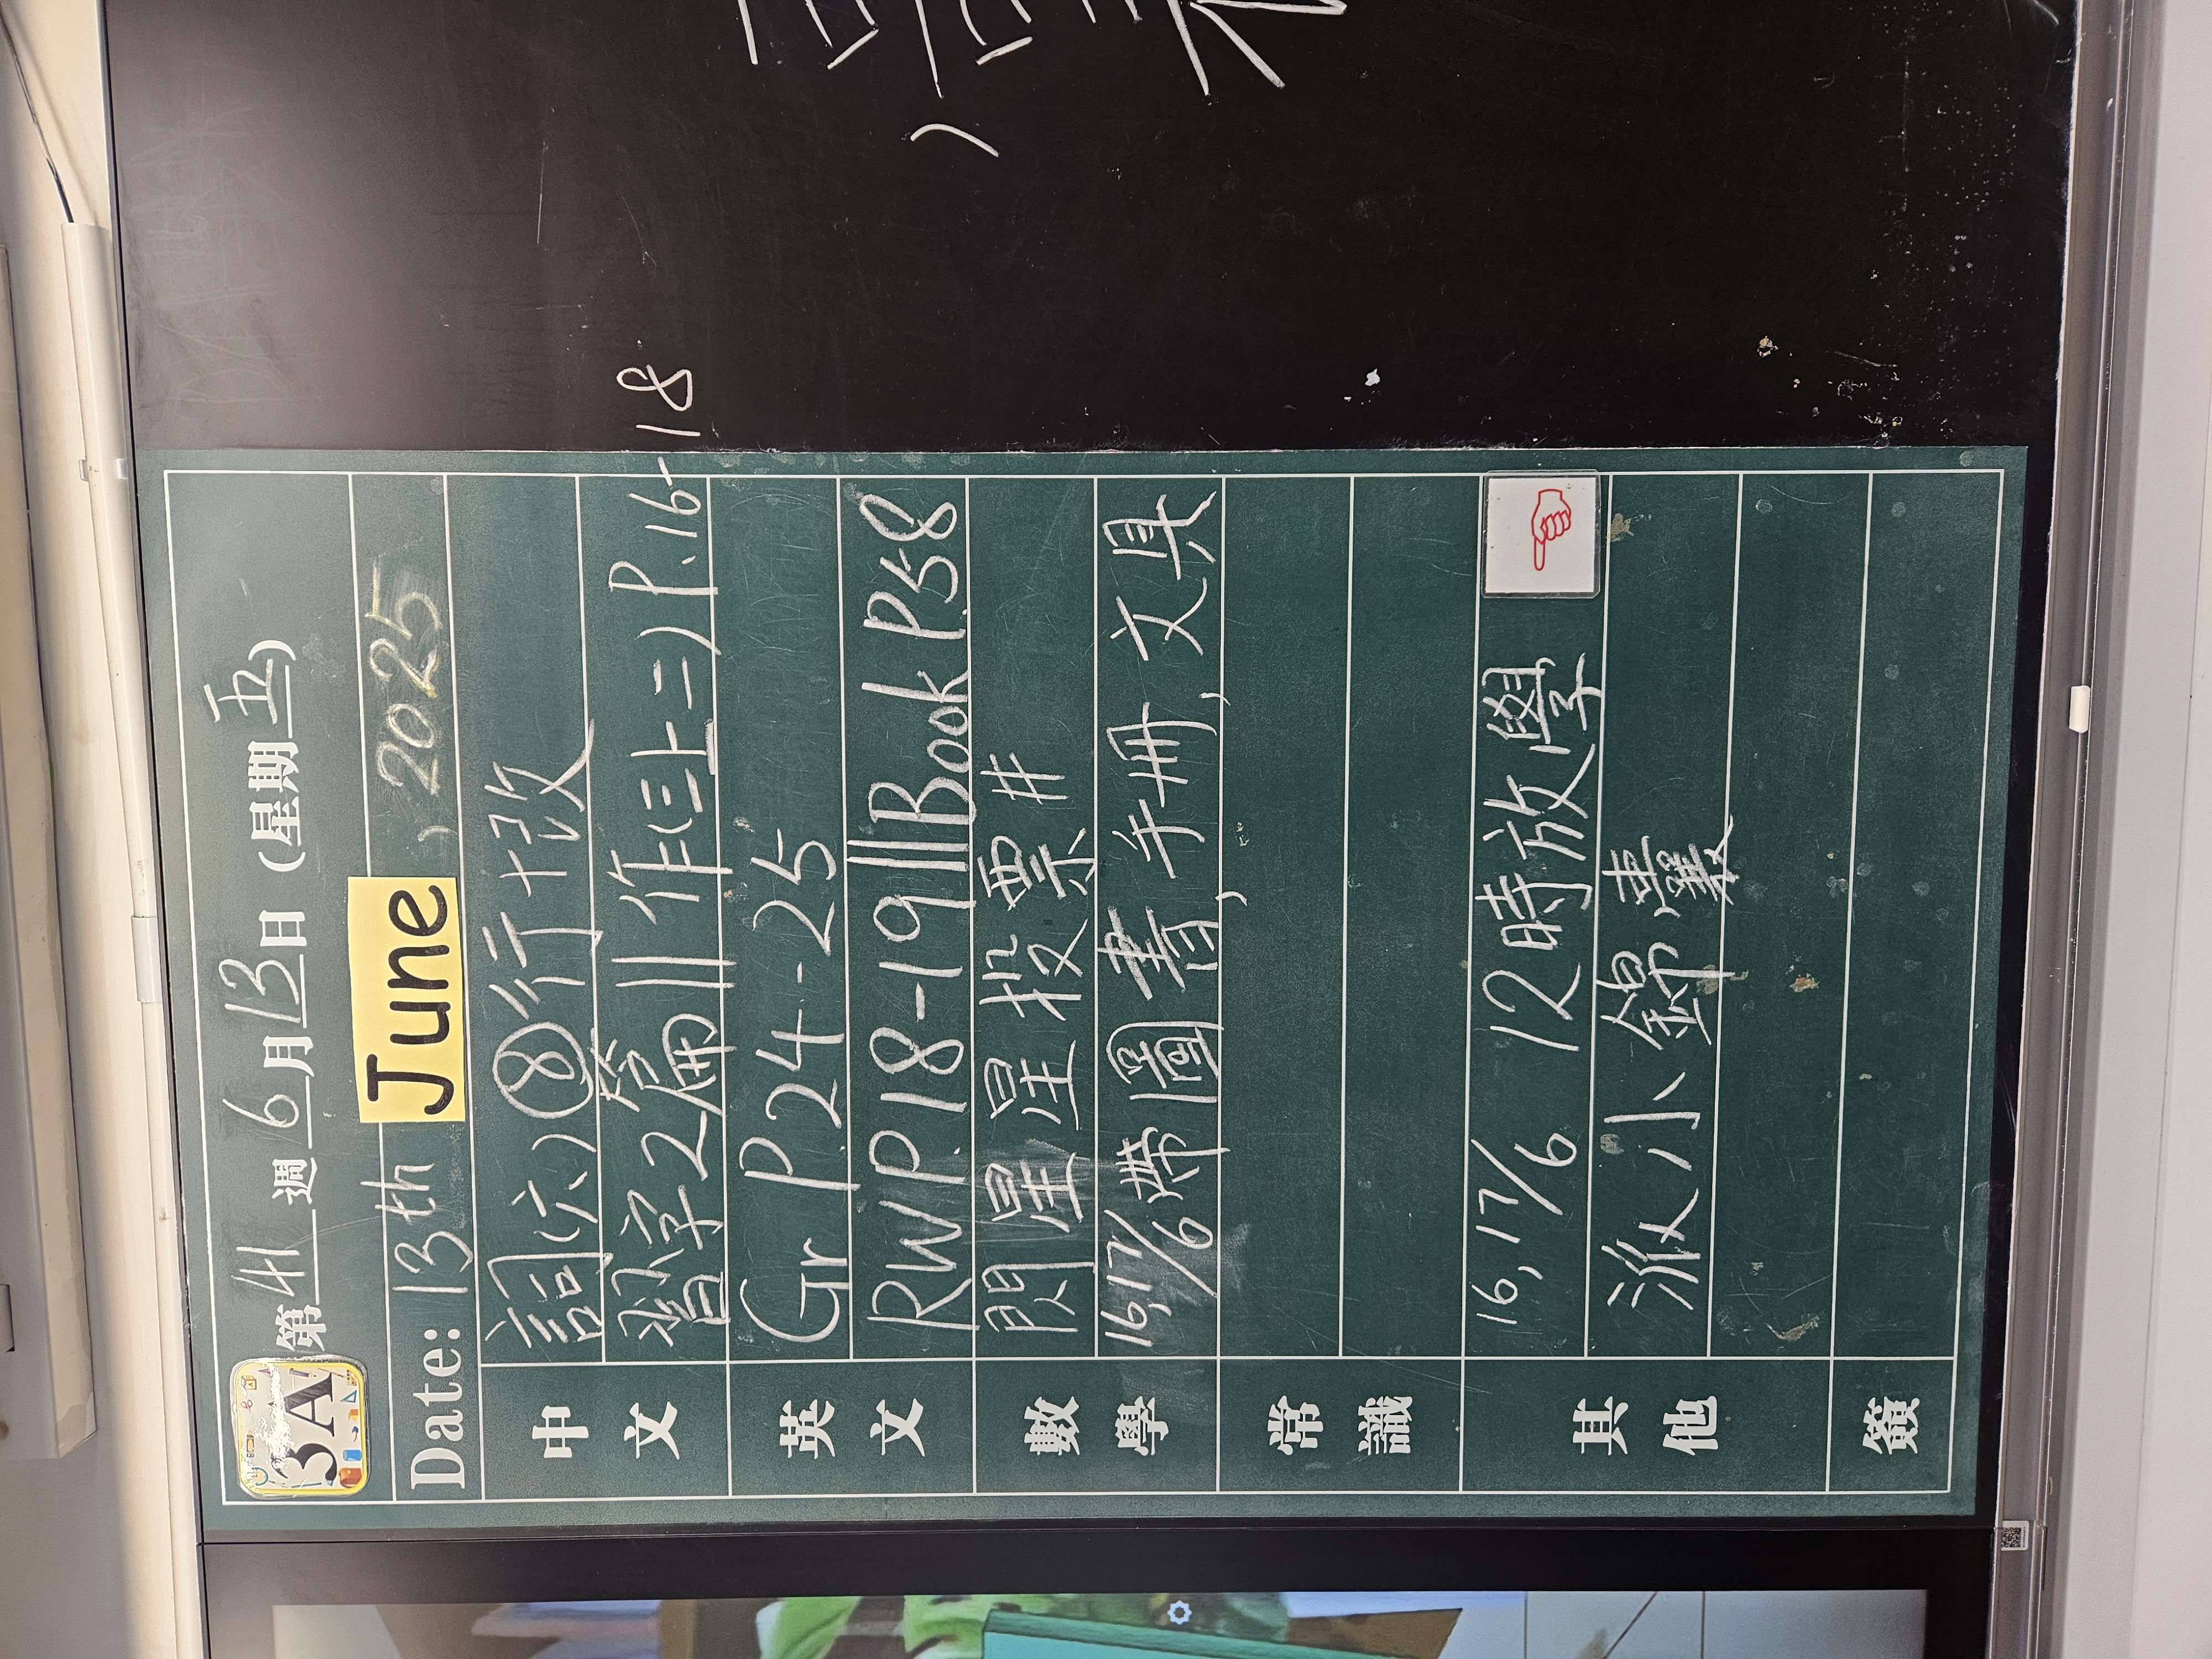 3A
第 41 週 6 月 13 日 (星期 五)
Date: 13th June , 2025
中文
詞(六)⑧行+改
習字2篇||作(三上二)P.16-18
英文
Gr P.24-25
RWP.18-19||Book P.5-8
數學
閃星星投票#
16,17/6帶圖書,手冊,文具
常識
其他
16,17/6 12時放學
派小錦囊
簽